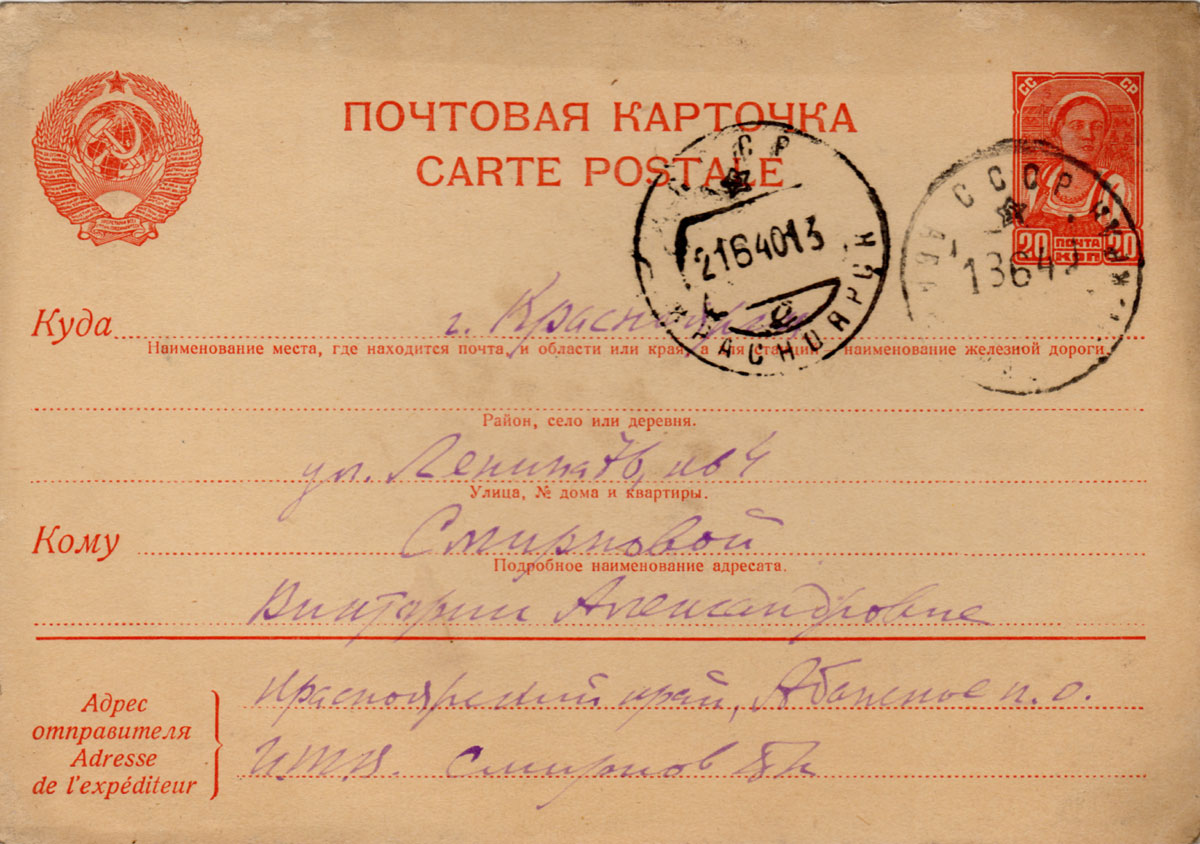 ПОЧТОВАЯ КАРТОЧКА
CARTE POSTALE
СС СР
20 ПОЧТА КОП 20
СССР
21 6 40 13
КРАСНОЯРСК
СССР
13 6 4
Куда г. Красноярск
Наименование места, где находится почта, и области или края, а для станций наименование железной дороги.
Район, село или деревня.
ул. Ленина 76, кв 4
Улица, № дома и квартиры.
Кому Смирновой
Подробное наименование адресата.
Виктории Александровне
Адрес отправителя
Adresse de l'expéditeur
Красноярский край, Абанское п.о.
Смирнов